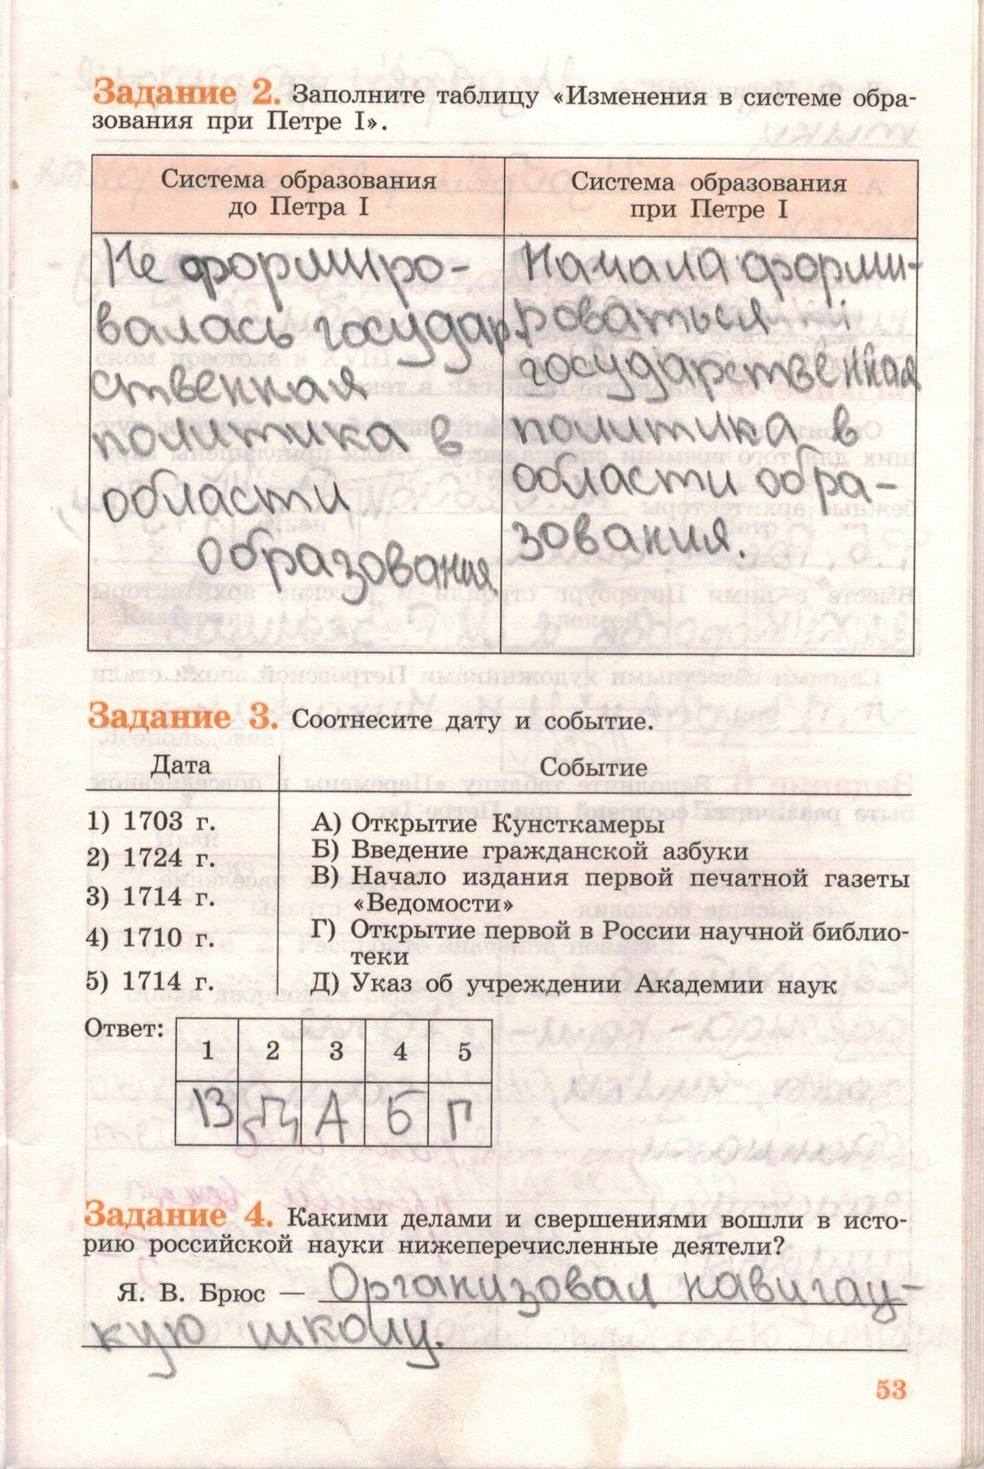 Задание 2. Заполните таблицу «Изменения в системе обра-
зования при Петре I».
Система образования
до Петра I
Система образования
при Петре I
Не формиро-
валась государ-
ственная
политика в
области
образования.
Начала форми-
роваться
государственная
политика в
области обра-
зования.
Задание 3. Соотнесите дату и событие.
Дата
Событие
1) 1703 г.
2) 1724 г.
3) 1714 г.
4) 1710 г.
5) 1714 г.
А) Открытие Кунсткамеры
Б) Введение гражданской азбуки
В) Начало издания первой печатной газеты
«Ведомости»
Г) Открытие первой в России научной библио-
теки
Д) Указ об учреждении Академии наук
Ответ:
1 2 3 4 5
В Д А Б Г
Задание 4. Какими делами и свершениями вошли в исто-
рию российской науки нижеперечисленные деятели?
Я. В. Брюс — Организовал навигац-
кую школу.
53